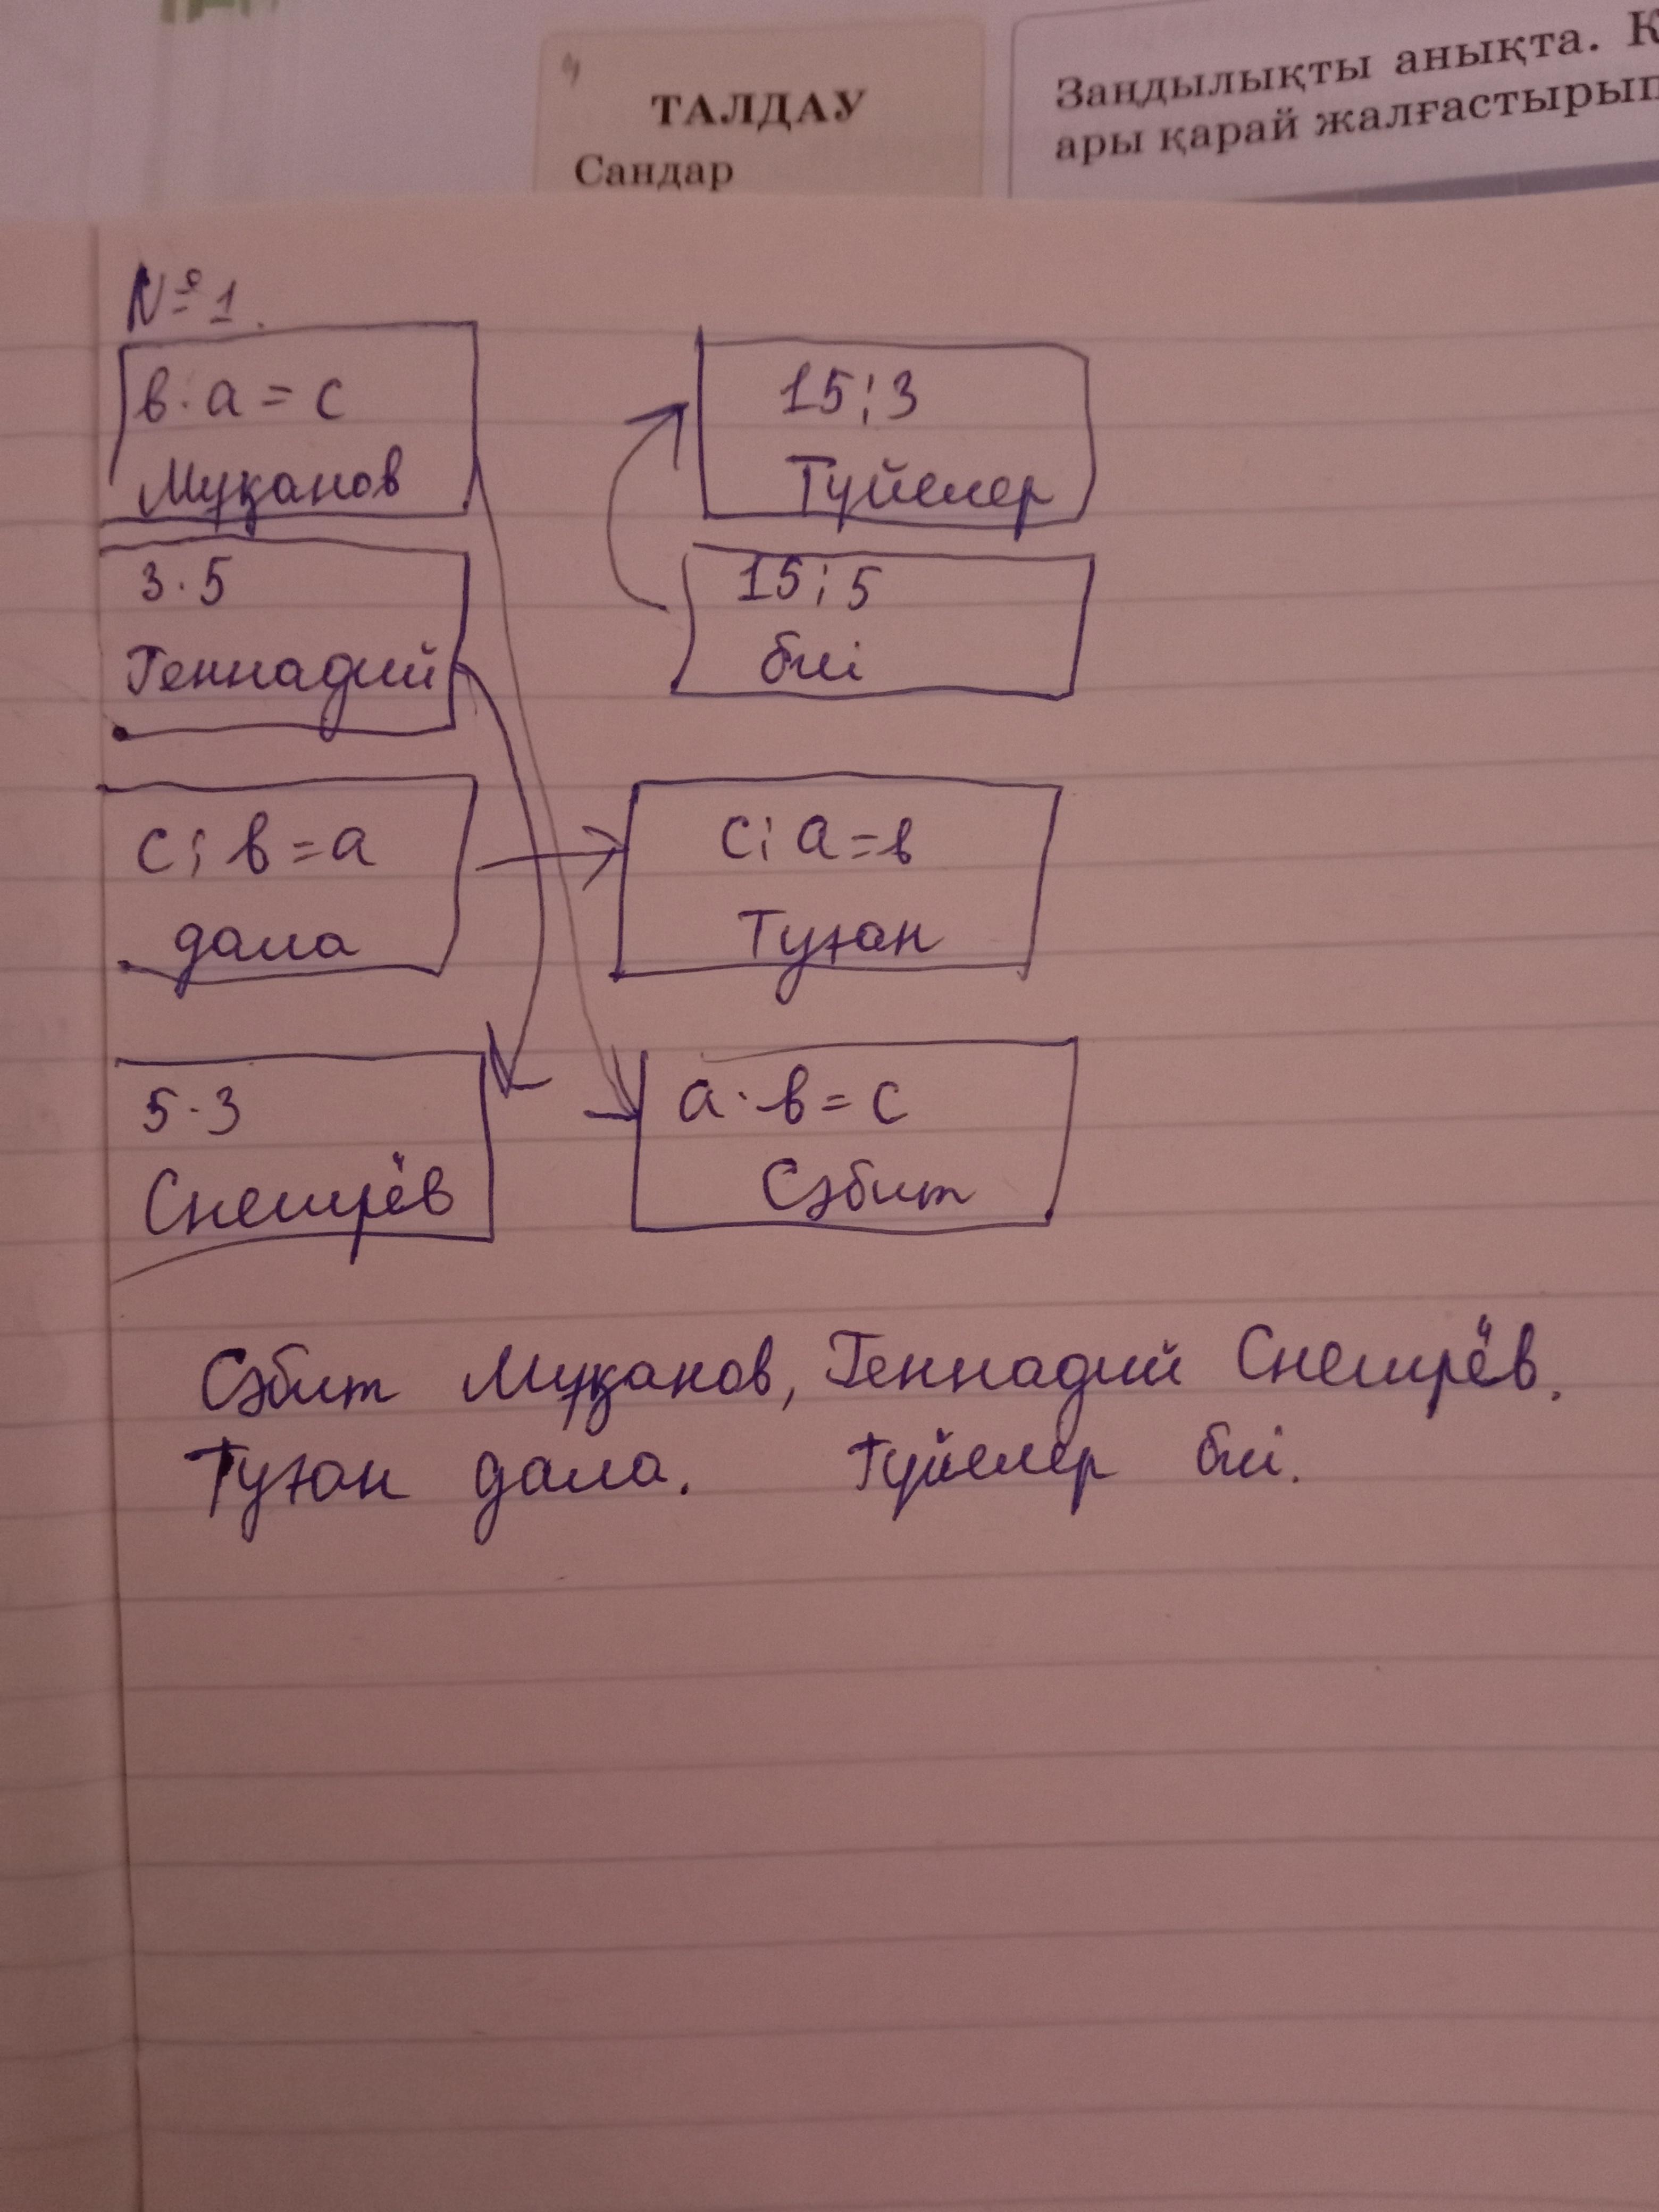 ТАЛДАУ
Сандар
Заңдылықты анықта.
ары қарай жалғастырып
№ 1.
в · а = с
Мұқанов
15 : 3
Түйелер
3 · 5
Геннадий
15 : 5
биі
с : в = а
дала
с : а = в
Туған
5 · 3
Снегирёв
а · в = с
Сәбит
Сәбит Мұқанов, Геннадий Снегирёв.
Туған дала. Түйелер биі.